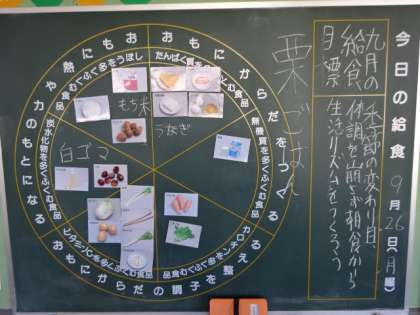 今日の給食
9月26日(月)曜
九月の
給食
目標
季節の変わり目、
体調を崩さず朝食から
生活リズムをつくろう
栗ごはん
おもにからだをつくる
たんぱく質を多くふくむ食品
無機質を多くふくむ食品
おもにからだの調子を整える
カロテンを多くふくむ食品
ビタミンCを多くふくむ食品
おもに熱や力のもとになる
炭水化物を多くふくむ食品
しぼうを多くふくむ食品
もち米
うなぎ
白ゴマ